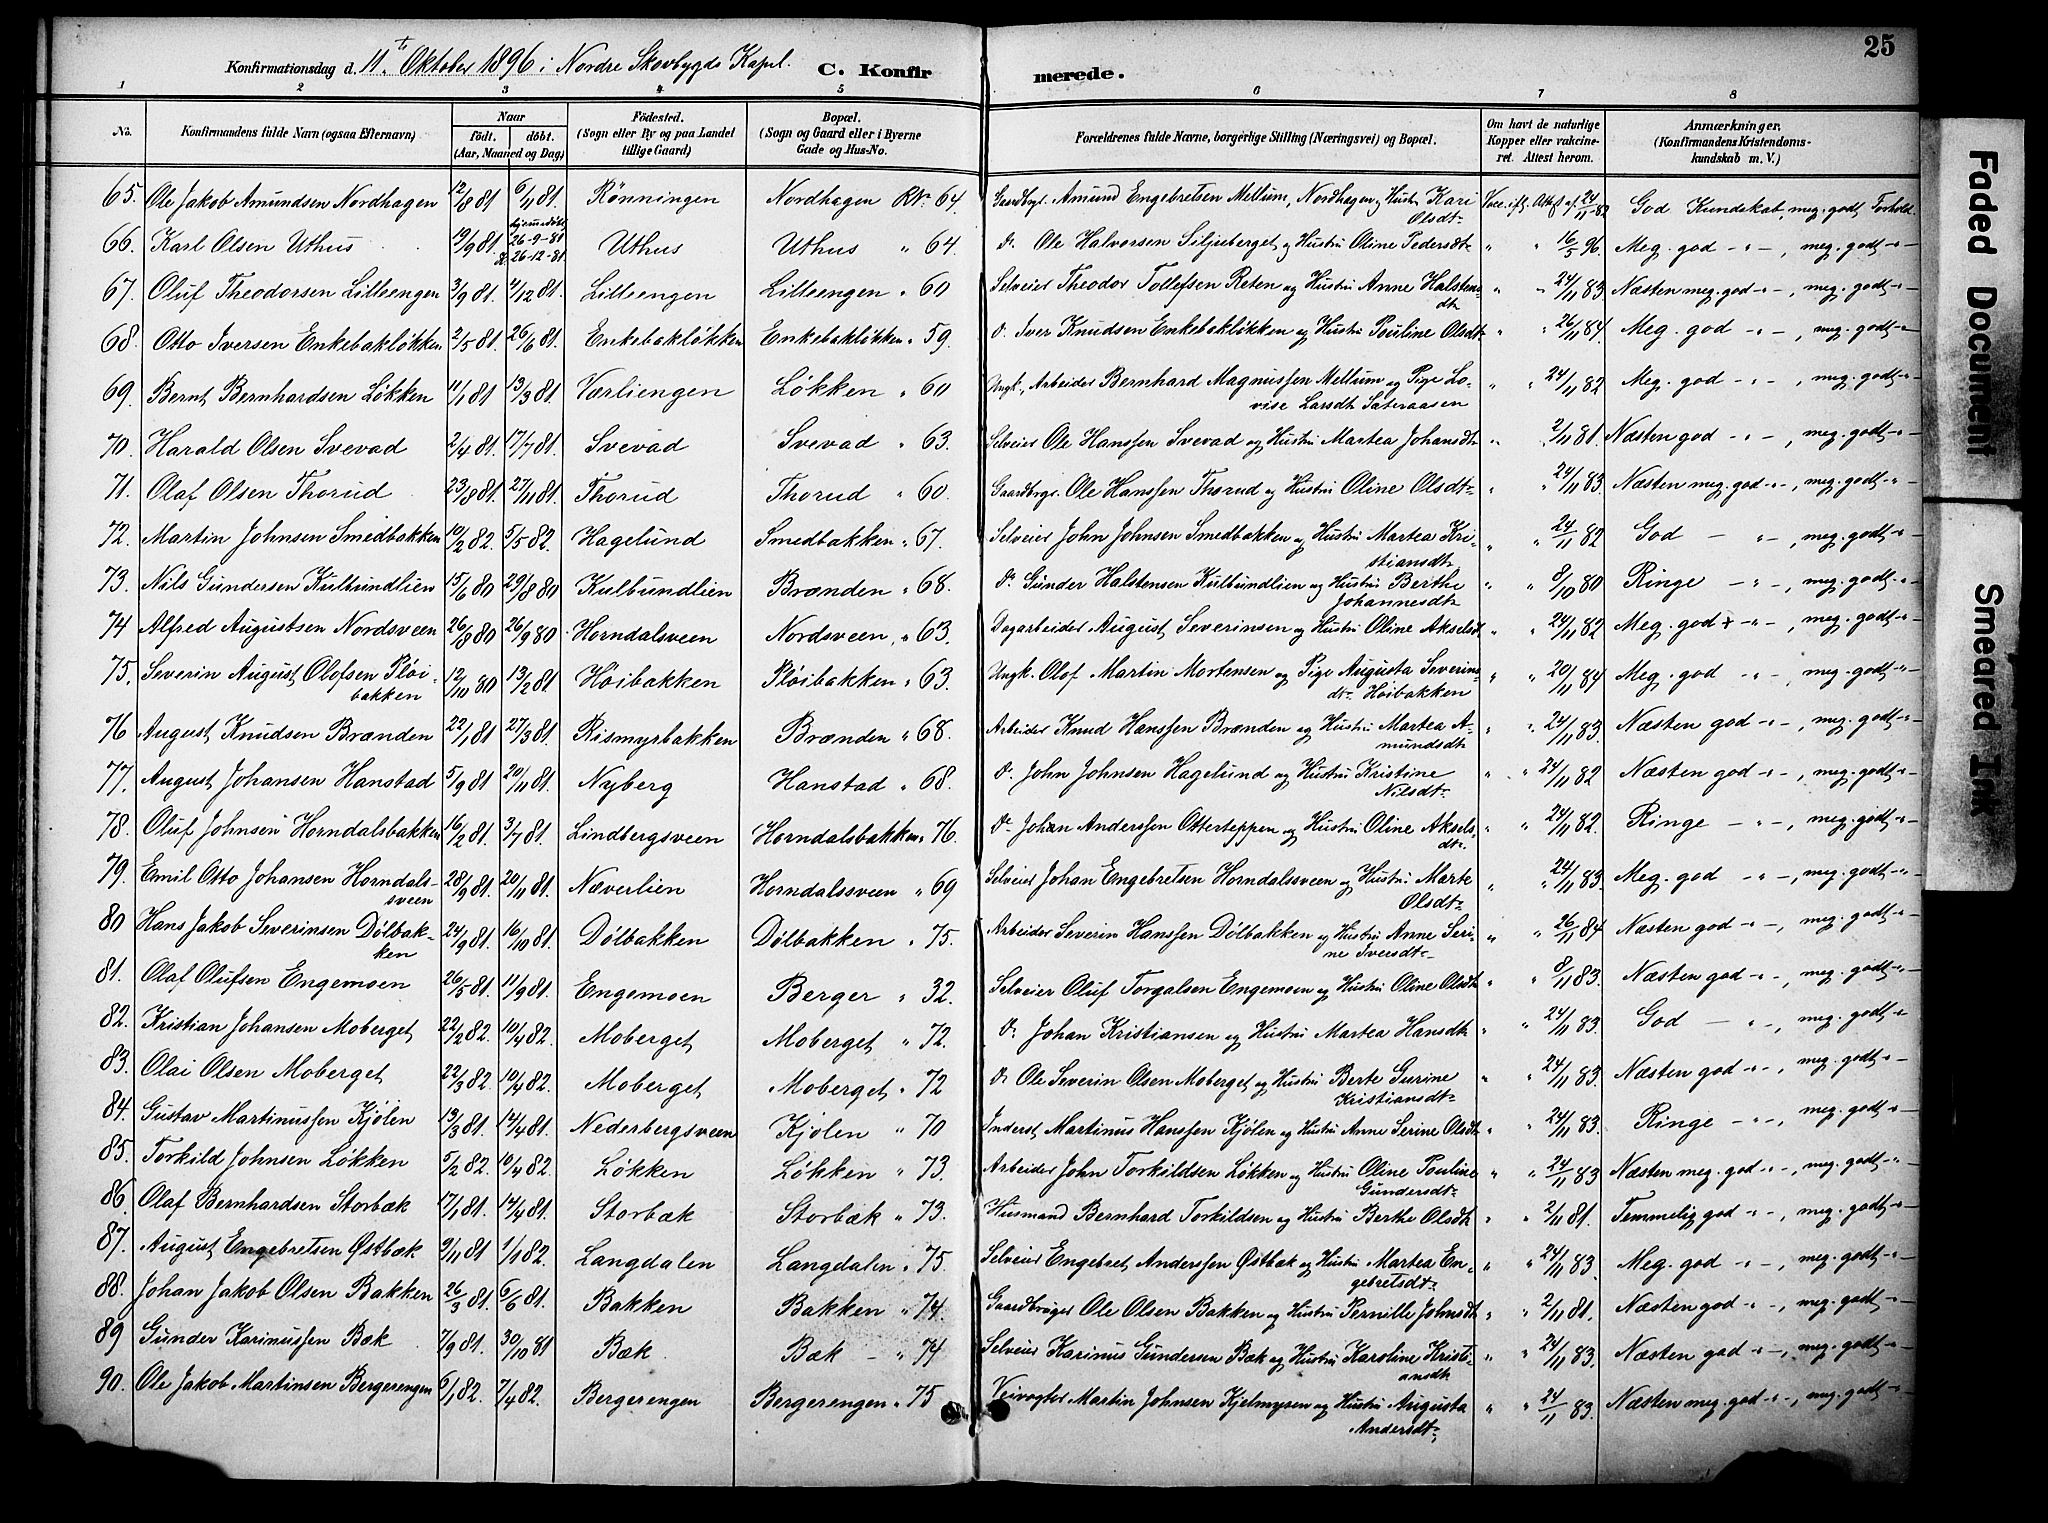 25
Konfirmationsdag d. 11te Oktober 1896 i Nordre Skovbygds Kapel. C. Konfirmerede.
1 2 3 4 5 6 7 8
No. Konfirmandens fulde Navn (ogsaa Efternavn) Naar født, døbt. (Aar, Maaned og Dag) Fødested. (Sogn eller By og paa Landet tillige Gaard) Bopæl. (Sogn og Gaard eller i Byerne Gade og Hus-No. Forældrenes fulde Navne, borgerlige Stilling (Næringsvei) og Bopæl. Om havt de naturlige Kopper eller vakcineret. Attest herom. Anmærkninger. (Konfirmandens Kristendomskundskab m. V.)
65. Ole Jakob Amundsen Nordhagen 12/8 81 6/11 81. Rönningen Nordhagen RN. 64. Gaardbgr. Amund Engebretsen Mellum, Nordhagen og Hustru Kari Olsdt. Vacc. ifl. Attest af 24/11-82 God Kundskab, meg. godt Forhold.
66. Karl Olsen Uthus 19/9 81. hjemmedøbt 26-9-81 K. 26-12-81 Uthus Uthus " 64. Do. Ole Halvorsen Siljuberget og Hustru Oline Pedersdt. " " 16/5 96. Meg. god - " -, meg. godt - " -
67. Oluf Theodorsen Lilleengen 3/9 81. 4/12 81. Lilleengen Lilleengen " 60 Selveier Theodor Tollefsen Reten og Hustru Anne Halstensdt. " " 24/11 83. Næsten meg. god - " -, meg. godt - " -
68. Otto Iversen Enkebakløkken 2/5 81. 26/6 81. Enkebakløkken Enkebakløkken " 59. Do. Iver Knudsen Enkebakløkken og Hustru Pouline Olsdt. " " 26/11 84. Meg. god - " -, meg. godt - " -
69. Bernt Bernhardsen Løkken 11/1 81 13/3 81. Værliengen Løkken " 60 Ungk., Arbeider Bernhard Magnussen Mellum og Pige Lovise Larsdt. Sæteraasen " " 24/11 82 Meg. god - " -, meg. godt - " -
70. Harald Olsen Svevad 2/4 81. 17/7 81. Svevad Svevad " 63. Selveier Ole Hanssen Svevad og Hustru Martea Johansdt. " " 2/11 81. Næsten god - " -, meg. godt - " -
71. Olaf Olsen Thorud 23/8 81. 27/11 81. Thorud Thorud " 60. Gaardbrgr. Ole Hanssen Thorud og Hustru Oline Olsdt. " " 24/11 83. Næsten meg. god - " -, meg. godt - " -
72. Martin Johnsen Smedbakken 10/2 82. 5/5 82. Hagelund Smedbakken " 67. Selveier John Johnsen Smedbakken og Hustru Martea Kristiansdt. " " 24/11 82 God - " -, meg. godt - " -
73. Nils Gundersen Kulbundlien 15/6 80 29/8 80 Kulbundlien Brænden " 68. Do. Gunder Halstensen Kulbundlien og Hustru Berthe Johannesdt. " " 8/10 80 Ringe - " -, meg. godt - " -
74 Alfred Augustsen Nordsveen 26/8 80 26/9 80 Horndalsveen Nordsveen " 63. Dagarbeider August Severinsen og Hustru Oline Akselsdt. " " 24/11 82 Meg. god - " -, meg. godt - " -
75. Severin August Olofsen Pløibakken 12/10 80 13/2 81 Høibakken Pløibakken " 63. Ungk. Olof Martin Mortensen og Pige Augusta Severinsdt. Høibakken " " 20/11 84 Meg. god - " -, meg. godt - " -
76 August Knudsen Brænden 22/1 81 27/3 81. Rismyrbakken Brænden " 68. Arbeider Knud Hanssen Brænden og Hustru Martea Amundsdt. " " 24/11 83. Næsten god - " -, meg. godt - " -
77. August Johansen Hanstad 5/9 81 20/11 81. Nyberg Hanstad " 68. Do. John Johnsen Hagelund og Hustru Kristine Nilsdt. " " 24/11 82 Næsten god - " -, meg. godt - " -
78. Oluf Johnsen Horndalsbakken 16/2 81. 3/7 81. Lindbergsveen Horndalsbakken " 76. Do. Johan Anderssen Otterteppen og Hustru Oline Akselsdt. " " 24/11 82. Ringe - " -, meg. godt - " -
79. Emil Otto Johansen Horndalssveen 28/9 81. 20/11 81. Næverlien Horndalssveen " 69 Selveier Johan Engebretsen Horndalssveen og Hustru Marte Olsdt. " " 24/11 83. Meg. god - " -, meg. godt - " -
80 Hans Jakob Severinsen Dölbakken 24/9 81. 16/10 81. Dölbakken Dölbakken " 75. Arbeider Severin Hanssen Dölbakken og Hustru Anne Serine Iversdt. " " 26/11 84 Næsten god - " -, meg. godt - " -
81. Olaf Olufsen Engemoen 26/5 81. 11/9 81. Engemoen Berger " 32. Selveier Oluf Torgalsen Engemoen og Hustru Oline Olsdt. " " 8/11 83. Næsten god - " -, meg. godt - " -
82. Kristian Johansen Moberget 22/2 82. 10/4 82. Moberget Moberget " 72. Do. Johan Kristiansen og Hustru Martea Hansdt. " " 24/11 83. God - " -, meg. godt - " -
83. Olai Olsen Moberget 22/3 82. 10/4 82. Moberget Moberget " 72 Do. Ole Severin Olsen Moberget og Hustru Berte Gurine Kristiansdt. " " 24/11 83. Næsten god - " -, meg. godt - " -
84. Gustav Martinussen Kjölen 13/3 81. 14/4 81. Nederbergsveen Kjölen " 70 Inderst Martinus Hanssen Kjölen og Hustru Anne Serine Olsdt. " " 24/11 83. Ringe - " -, meg. godt - " -
85. Torkild Johnsen Løkken 5/2 82. 10/4 82. Løkken Løkken " 73. Arbeider John Torkildsen Løkken og Hustru Oline Pouline Gundersdt. " " 24/11 83 Næsten meg. god - " -, meg. godt - " -
86. Olaf Bernhardsen Storbæk 17/1 81. 14/4 81. Storbæk Storbæk " 73. Husmand Bernhard Torkildsen og Hustru Berthe Olsdt. " " 2/11 81. Temmelig god - " -, meg. godt - " -
87. August Engebretsen Østbæk 9/11 81 1/1 82. Langdalen Langdalen " 75. Selveier Engebret Anderssen Østbæk og Hustru Martea Engebretsdt. " " 24/11 83. Meg. god - " -, meg. godt - " -
88. Johan Jakob Olsen Bakken 26/3 81. 6/6 81. Bakken Bakken " 74. Gaardbruger Ole Olsen Bakken og Hustru Pernille Johnsdt. " " 2/11 81. Næsten god - " -, meg. godt - " -
89 Gunder Karinussen Bæk 7/9 81. 30/10 81 Bæk Bæk - " 74 Selveier Karinus Gundersen Bæk og Hustru Karoline Kristiansdt. " " 24/11 83. Næsten god - " -, meg. godt - " -
90. Ole Jakob Martinsen Bergerengen 6/1 82. 7/4 82. Bergerengen Bergerengen " 75 Veivogter Martin Johnsen Kjelmyren og Hustru Augusta Andersdt. " " 24/11 83. Næsten meg. god - " -, meg. godt - " -
Faded Document
Smeared Ink